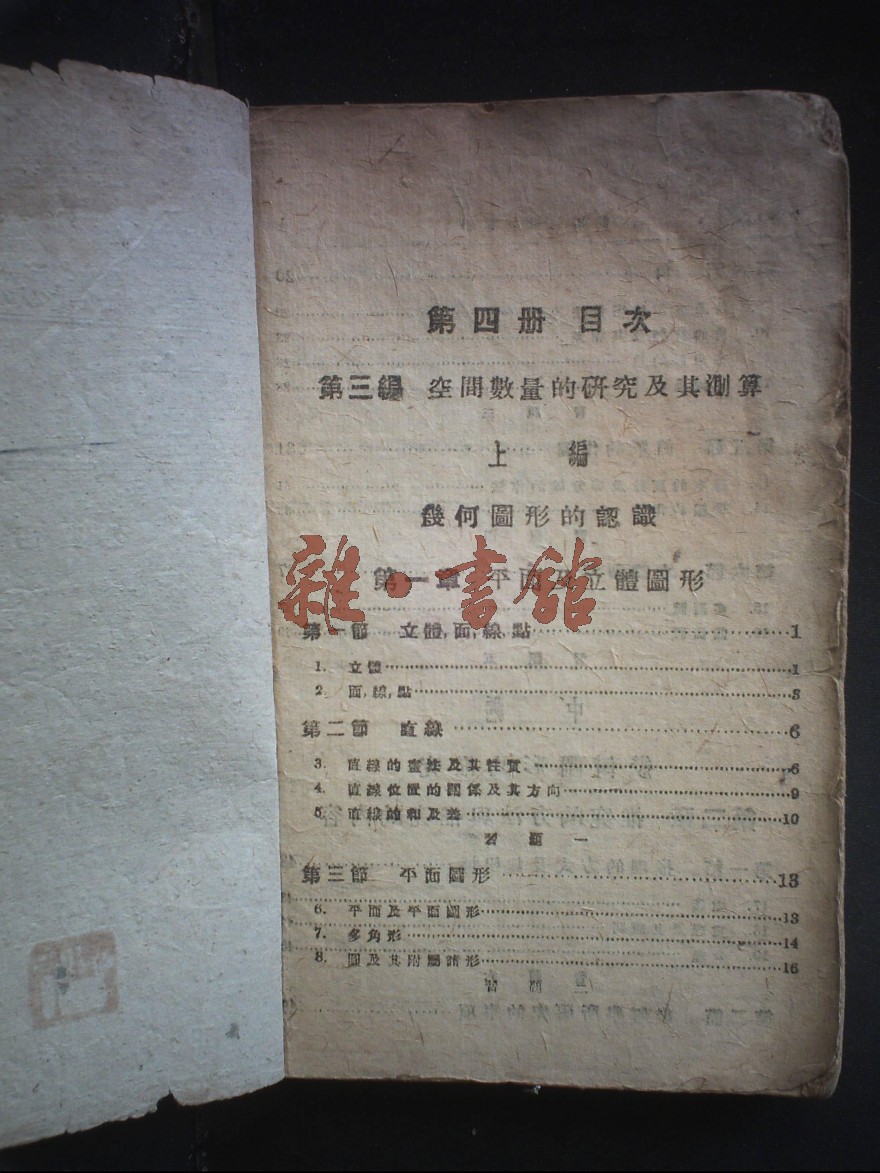 第四册 目次
第三編 空間數量的研究及其測算
上 編
幾何圖形的認識
第一章 平面及立體圖形
雜·書館
第一節 立體,面,線,點……1
1. 立體……1
2. 面,線,點……3
第二節 直線……6
3. 直線的畫法及其性質……6
4. 直線位置的關係及其方向……9
5. 直線的和及差……10
習題一
第三節 平面圖形……13
6. 平面及平面圖形……13
7. 多角形……14
8. 圓及其附屬諸形……16
習題二